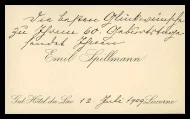 Die besten Glückwünsche
zu Ihrem 60. Geburtstage
sendet Ihnen
Emil Spillmann
Gd. Hôtel du Lac 12 Juli 1909 Lucerne